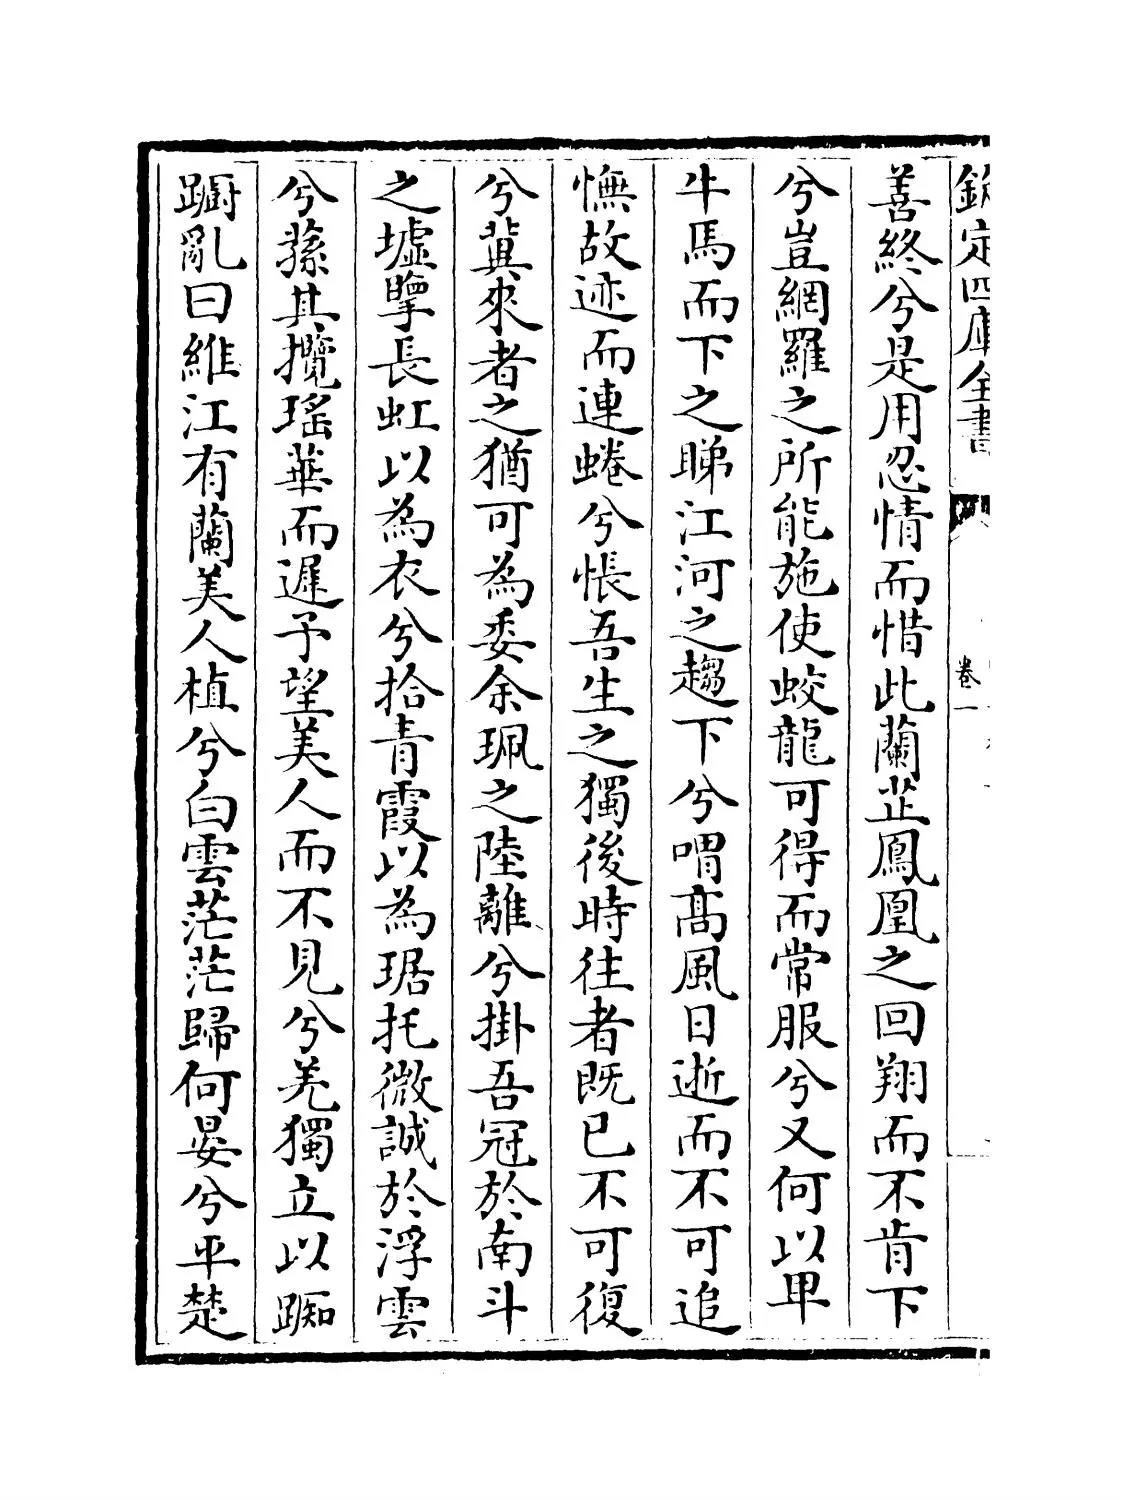 欽定四庫全書
卷一
善終兮是用忍情而惜此蘭芷鳳凰之回翔而不肯下
兮豈網羅之所能施使蛟龍可得而常服兮又何以卑
牛馬而下之睇江河之趨下兮喟髙風日逝而不可追
憮故迹而連蜷兮悵吾生之獨後時往者既已不可復
兮冀來者之猶可為委余珮之陸離兮掛吾冠於南斗
之墟擥長虹以為衣兮拾青霞以為琚托微誠於浮雲
兮蓀其攬瑤華而遲予望美人而不見兮羌獨立以踟
躕亂曰維江有蘭美人植兮白雲茫茫歸何晏兮平楚